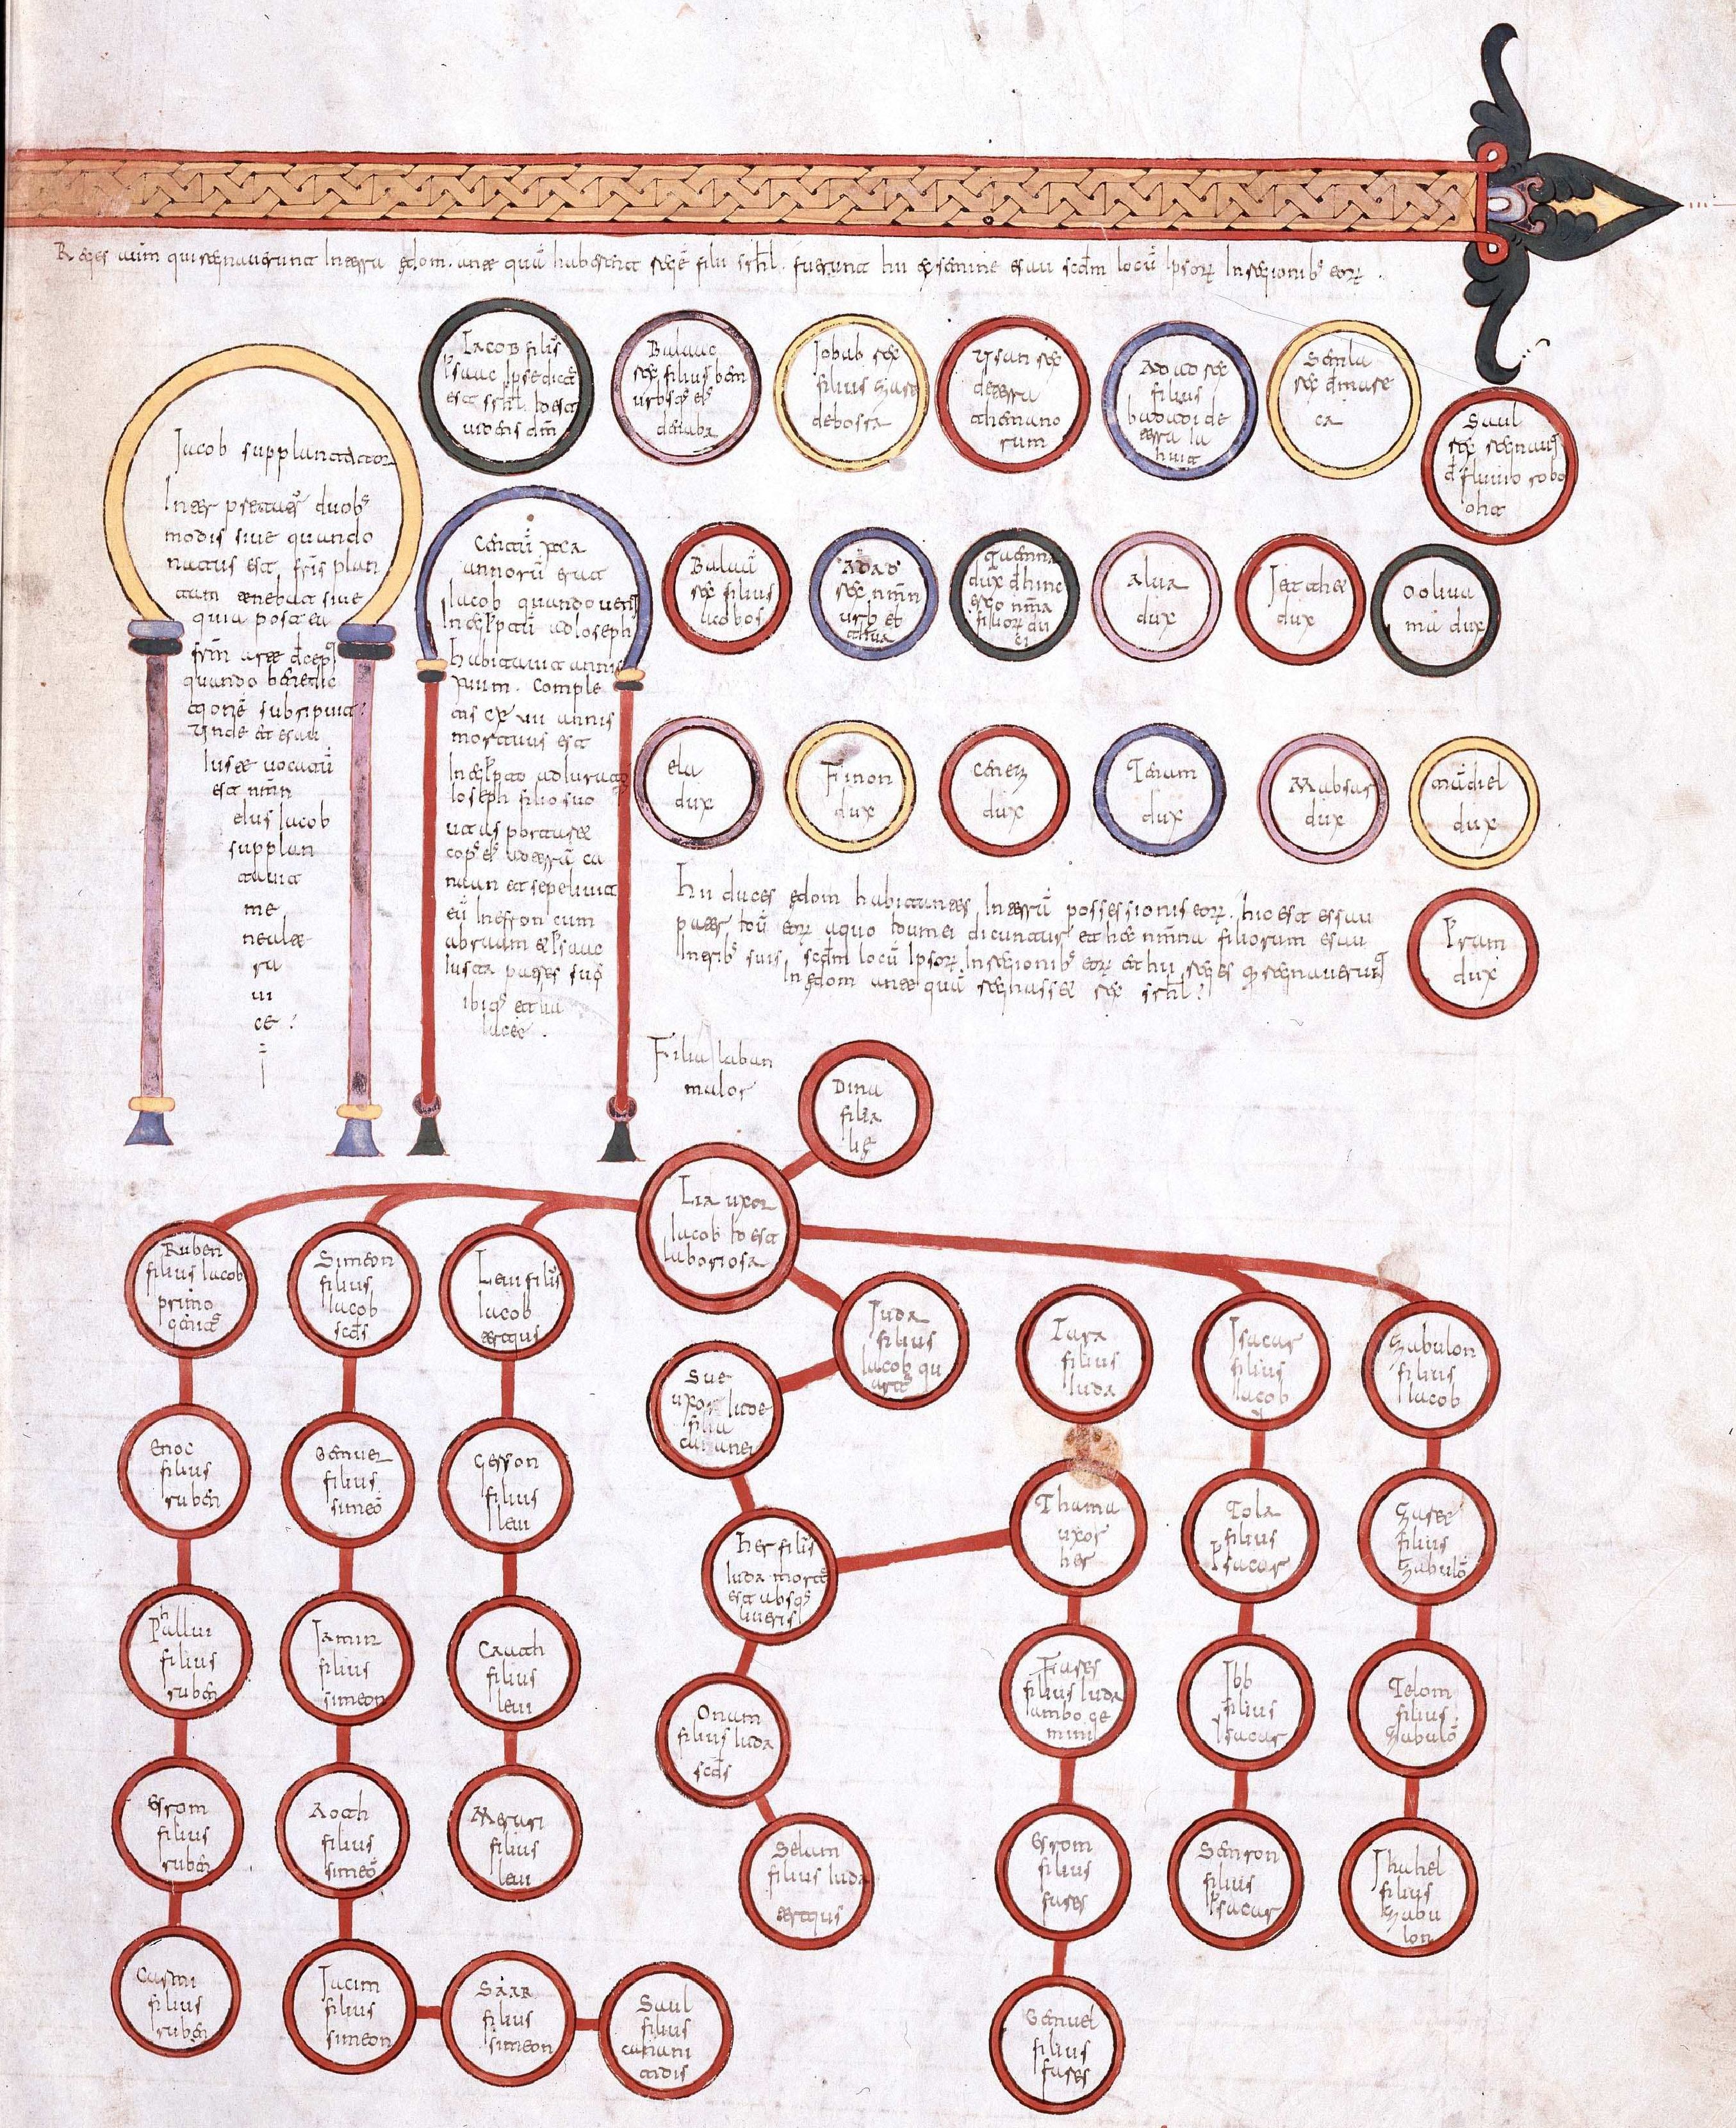 Reges autem qui regnaverunt In terra edom. ante quã haberent regẽ filii srhl. fuerunt hii ex semine esau scdm locũ Ipsorum In regionibus eorum.
Iacob filius
Ysaac Ipse dictus
est srhl. id est
videns dm
Balaac
rex filius beor
urbsque eius
denaba
Jobab rex
filius zare
de bosra
Ysan rex
de terra
themano
rum
Adad rex
filius
badadi de
terra
Semla
rex de mase
ca
Saul
rex regnavit
de fluvio robo
oth
Jacob supplantator
Interpretatur duobus
modis sive quando
natus est fratris plan
tam tenebat sive
quia postea
frm arte decepit
quando benedic
tionẽ subripuit
Unde et esau
Iuste vocatũ
est nmn
eius Iacob
supplan
tavit
me
en altera
vi
ce
Centũ xxx
annorũ erat
Iacob quando venit
In egyptũ ad Ioseph
habitavit annis
xvii. Comple
tis cxlvii annis
mortuus est
In egypto adiurato
Ioseph filio suo
ut asportaret
corpus eius ad terrã ca
naan et sepelivit
eũ In efron cum
abraam et Ysaac
Iuxta patres suos
ibique et lia
iacet.
Balaã
rex filius
acobor
Adad
rex nmn
urb et
dux
alua
dux
Jetthe
dux
ooliva
ma dux
ela
dux
Finon
dux
Cenez
dux
Teman
dux
Mabsar
dux
madiel
dux
Yram
dux
Hii duces edom habitantes In terrã possessionis eorum. hic est esau
pater eorum a quo idumei dicuntur et hec nmna filiorum esau
scdm locũ Ipsorum In regionibus eorum et hii reges qui regnaverunt
In edom ante quã regnasset rex srhl
Filia laban
maior
Dina
filia
lie
Lia uxor
Iacob id est
laboriosa
Ruben
filius Iacob
primo
genitus
Simeon
filius
Iacob
scds
Levi filius
Iacob
tertius
Juda
filius
Iacob qu
artus
Sue
uxor Iude
filia
cananei
Zara
filius
Iuda
Jsacar
filius
Iacob
Zabulon
filius
Iacob
Enoc
filius
ruben
Gemuel
filius
simeõ
Gerson
filius
levi
her filius
Iuda mortuus
est absque
liveris
Thama
uxor
her
Tola
filius
Ysacar
Zaret
filius
Zabulõ
Phallui
filius
ruben
Jamin
filius
simeon
Caath
filius
levi
Onam
filius Iuda
scds
Fares
filius Iuda
ambo ge
mini
Jbb
filius
Ysacar
Telom
filius
Zabulõ
Esrom
filius
ruben
Aoth
filius
simeõ
Merari
filius
levi
Selam
filius Iuda
tertius
Esrom
filius
fares
Senron
filius
Ysacar
Jhahel
filius
Zabu
lon
Carmi
filius
ruben
Jacim
filius
simeon
Saar
filius
simeon
Saul
filius
canani
tidis
Gemuel
filius
fares